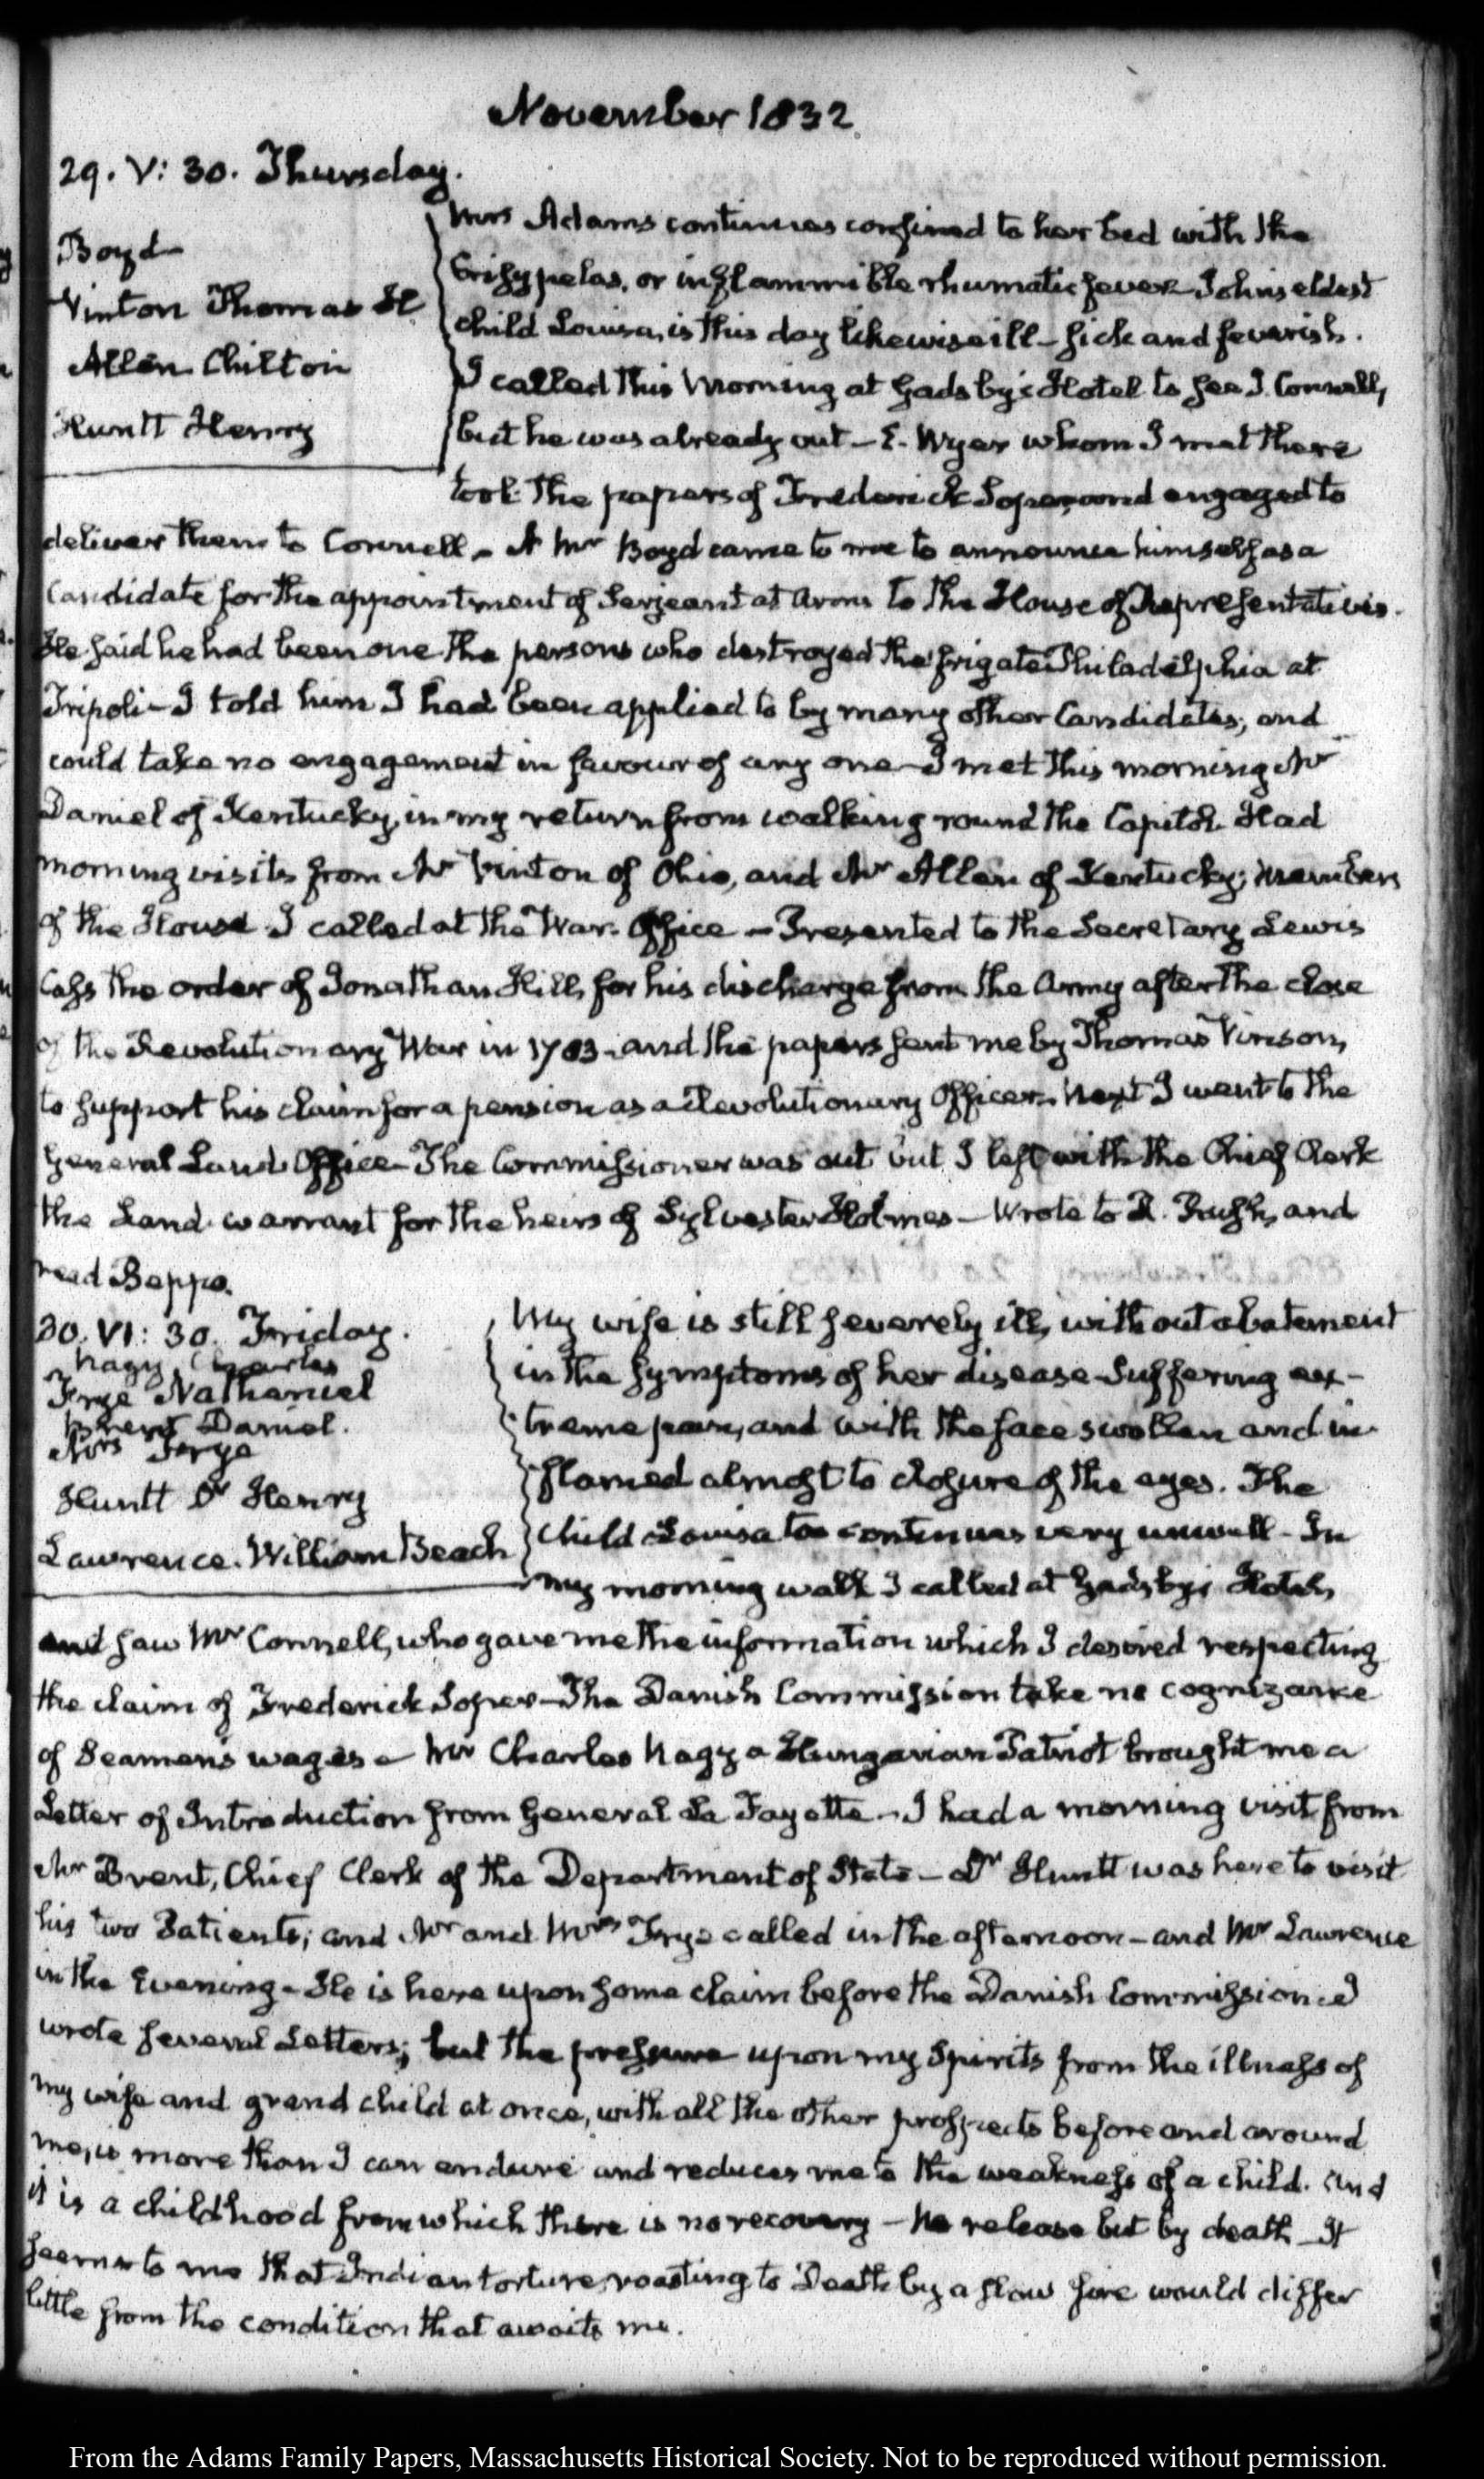 November 1832
29. V: 30. Thursday.
Boyd
Vinton Thomas
Allen Chilton
Huntt Henry
Mrs Adams continues confined to her bed with the
Erisypelas, or inflammible rhumatic fever. Johns eldest
child Louisa, is this day likewise ill - sick and feverish.
I called this morning at Gadsby's Hotel to see J. Connell,
but he was already out - E. Wyer whom I met there
took the papers of Frederick Soper, and engaged to
deliver them to Connell - A Mr Boyd came to me to announce himself as a
Candidate for the appointment of Serjeant at Arms to the House of Representatives.
He said he had been one the persons who destroyed the frigate Philadelphia at
Tripoli - I told him I had been applied to by many other Candidates, and
could take no engagement in favour of any one - I met this morning Mr
Daniel of Kentucky, in my return from walking round the Capitol. Had
morning visits from Mr Vinton of Ohio, and Mr Allan of Kentucky; members
of the House. I called at the War Office - Presented to the Secretary Lewis
Cass the order of Jonathan Hill, for his discharge from the Army after the close
of the Revolutionary War in 1783 - and the papers sent me by Thomas Vinson,
to support his claim for a pension as a Revolutionary Officer. Next I went to the
General Land Office - The Commissioner was out but I left with the Chief Clerk
the Land warrant for the heirs of Sylvester Holmes - Wrote to R. Rush, and
read Beppo.
30. VI: 30. Friday.
Nagy Charles
Frye Nathaniel
Brent Daniel.
Mrs Frye
Huntt Dr Henry
Lawrence. William Beach
My wife is still severely ill, without abatement
in the symptoms of her disease. Suffering ex-
treme pain, and with the face swollen and in-
flamed almost to closure of the eyes. The
child Louisa too continues very unwell - In
my morning walk I called at Gadsby's Hotel,
and saw Mr Connell, who gave me the information which I desired respecting
the claim of Frederick Soper - The Danish Commission take no cognizance
of Seamen's wages - Mr Charles Nagy a Hungarian Patriot brought me a
Letter of Introduction from General La Fayette - I had a morning visit from
Mr Brent, Chief Clerk of the Department of State - Dr Huntt was here to visit
his two Patients; and Mr and Mrs Frye called in the afternoon - and Mr Lawrence
in the Evening - He is here upon some claim before the Danish Commission. I
wrote several Letters; but the pressure upon my Spirits from the illness of
my wife and grand child at once, with all the other prospects before and around
me, is more than I can endure and reduces me to the weakness of a child. And
it is a childhood from which there is no recovery - No release but by death - It
seems to me that Indian torture, roasting to Death by a slow fire would differ
little from the condition that awaits me.
From the Adams Family Papers, Massachusetts Historical Society. Not to be reproduced without permission.